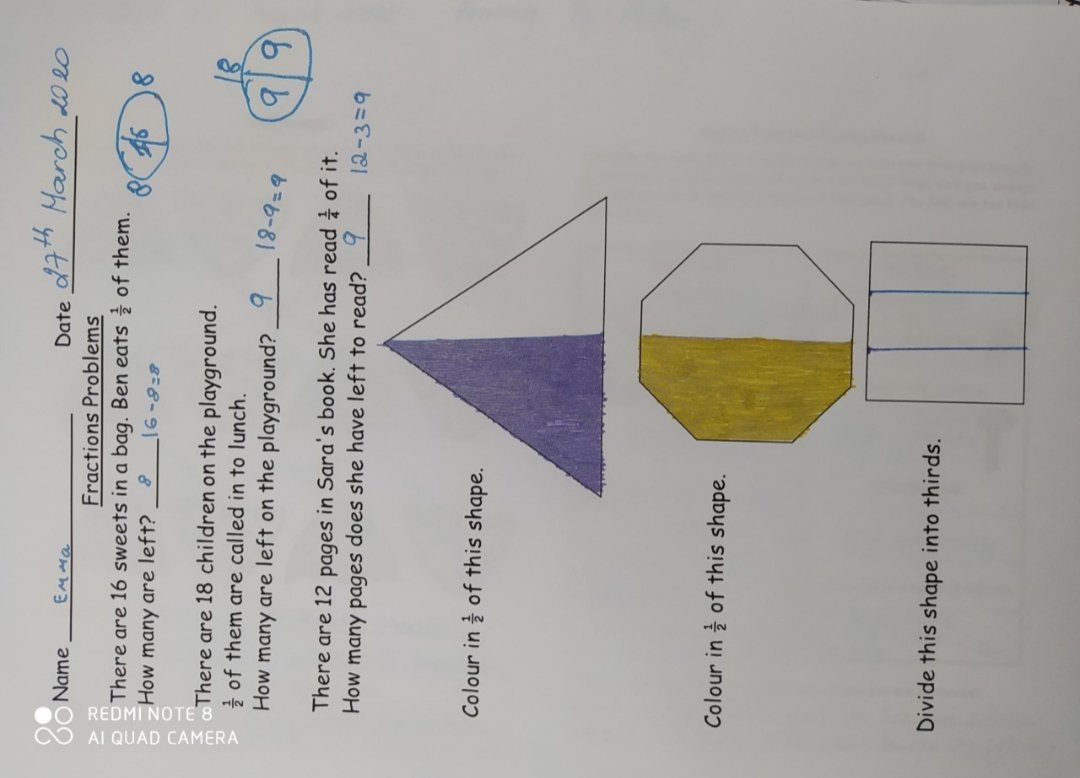 Name Emma Date 27th March 2020
Fractions Problems
There are 16 sweets in a bag. Ben eats 1/2 of them. 8 16 8
How many are left? 8 16-8=8
There are 18 children on the playground.
1/2 of them are called in to lunch. 18
How many are left on the playground? 9 18-9=9 9 9
There are 12 pages in Sara's book. She has read 1/4 of it.
How many pages does she have left to read? 9 12-3=9
Colour in 1/2 of this shape.
Colour in 1/2 of this shape.
Divide this shape into thirds.
REDMI NOTE 8
AI QUAD CAMERA